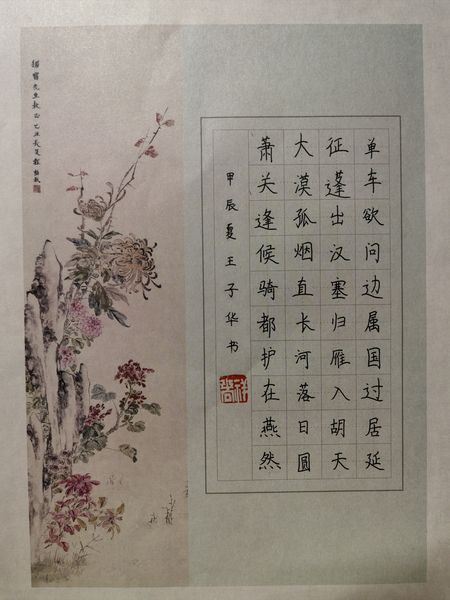 单车欲问边属国过居延
征蓬出汉塞归雁入胡天
大漠孤烟直长河落日圆
萧关逢候骑都护在燕然
甲辰夏王子华书
先生教正乙丑长夏